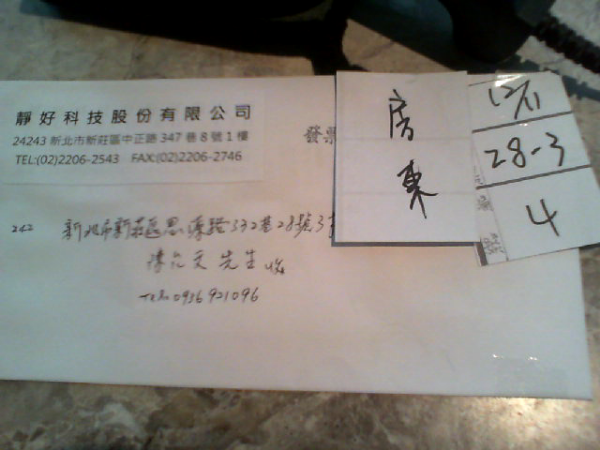 靜好科技股份有限公司
24243 新北市新莊區中正路347巷8號1樓
TEL:(02)2206-2543 FAX:(02)2206-2746
發票
房東
12/11
28-3
4
242 新北市新莊區思源路532巷28號3
先生 收
Tel: 0936921096